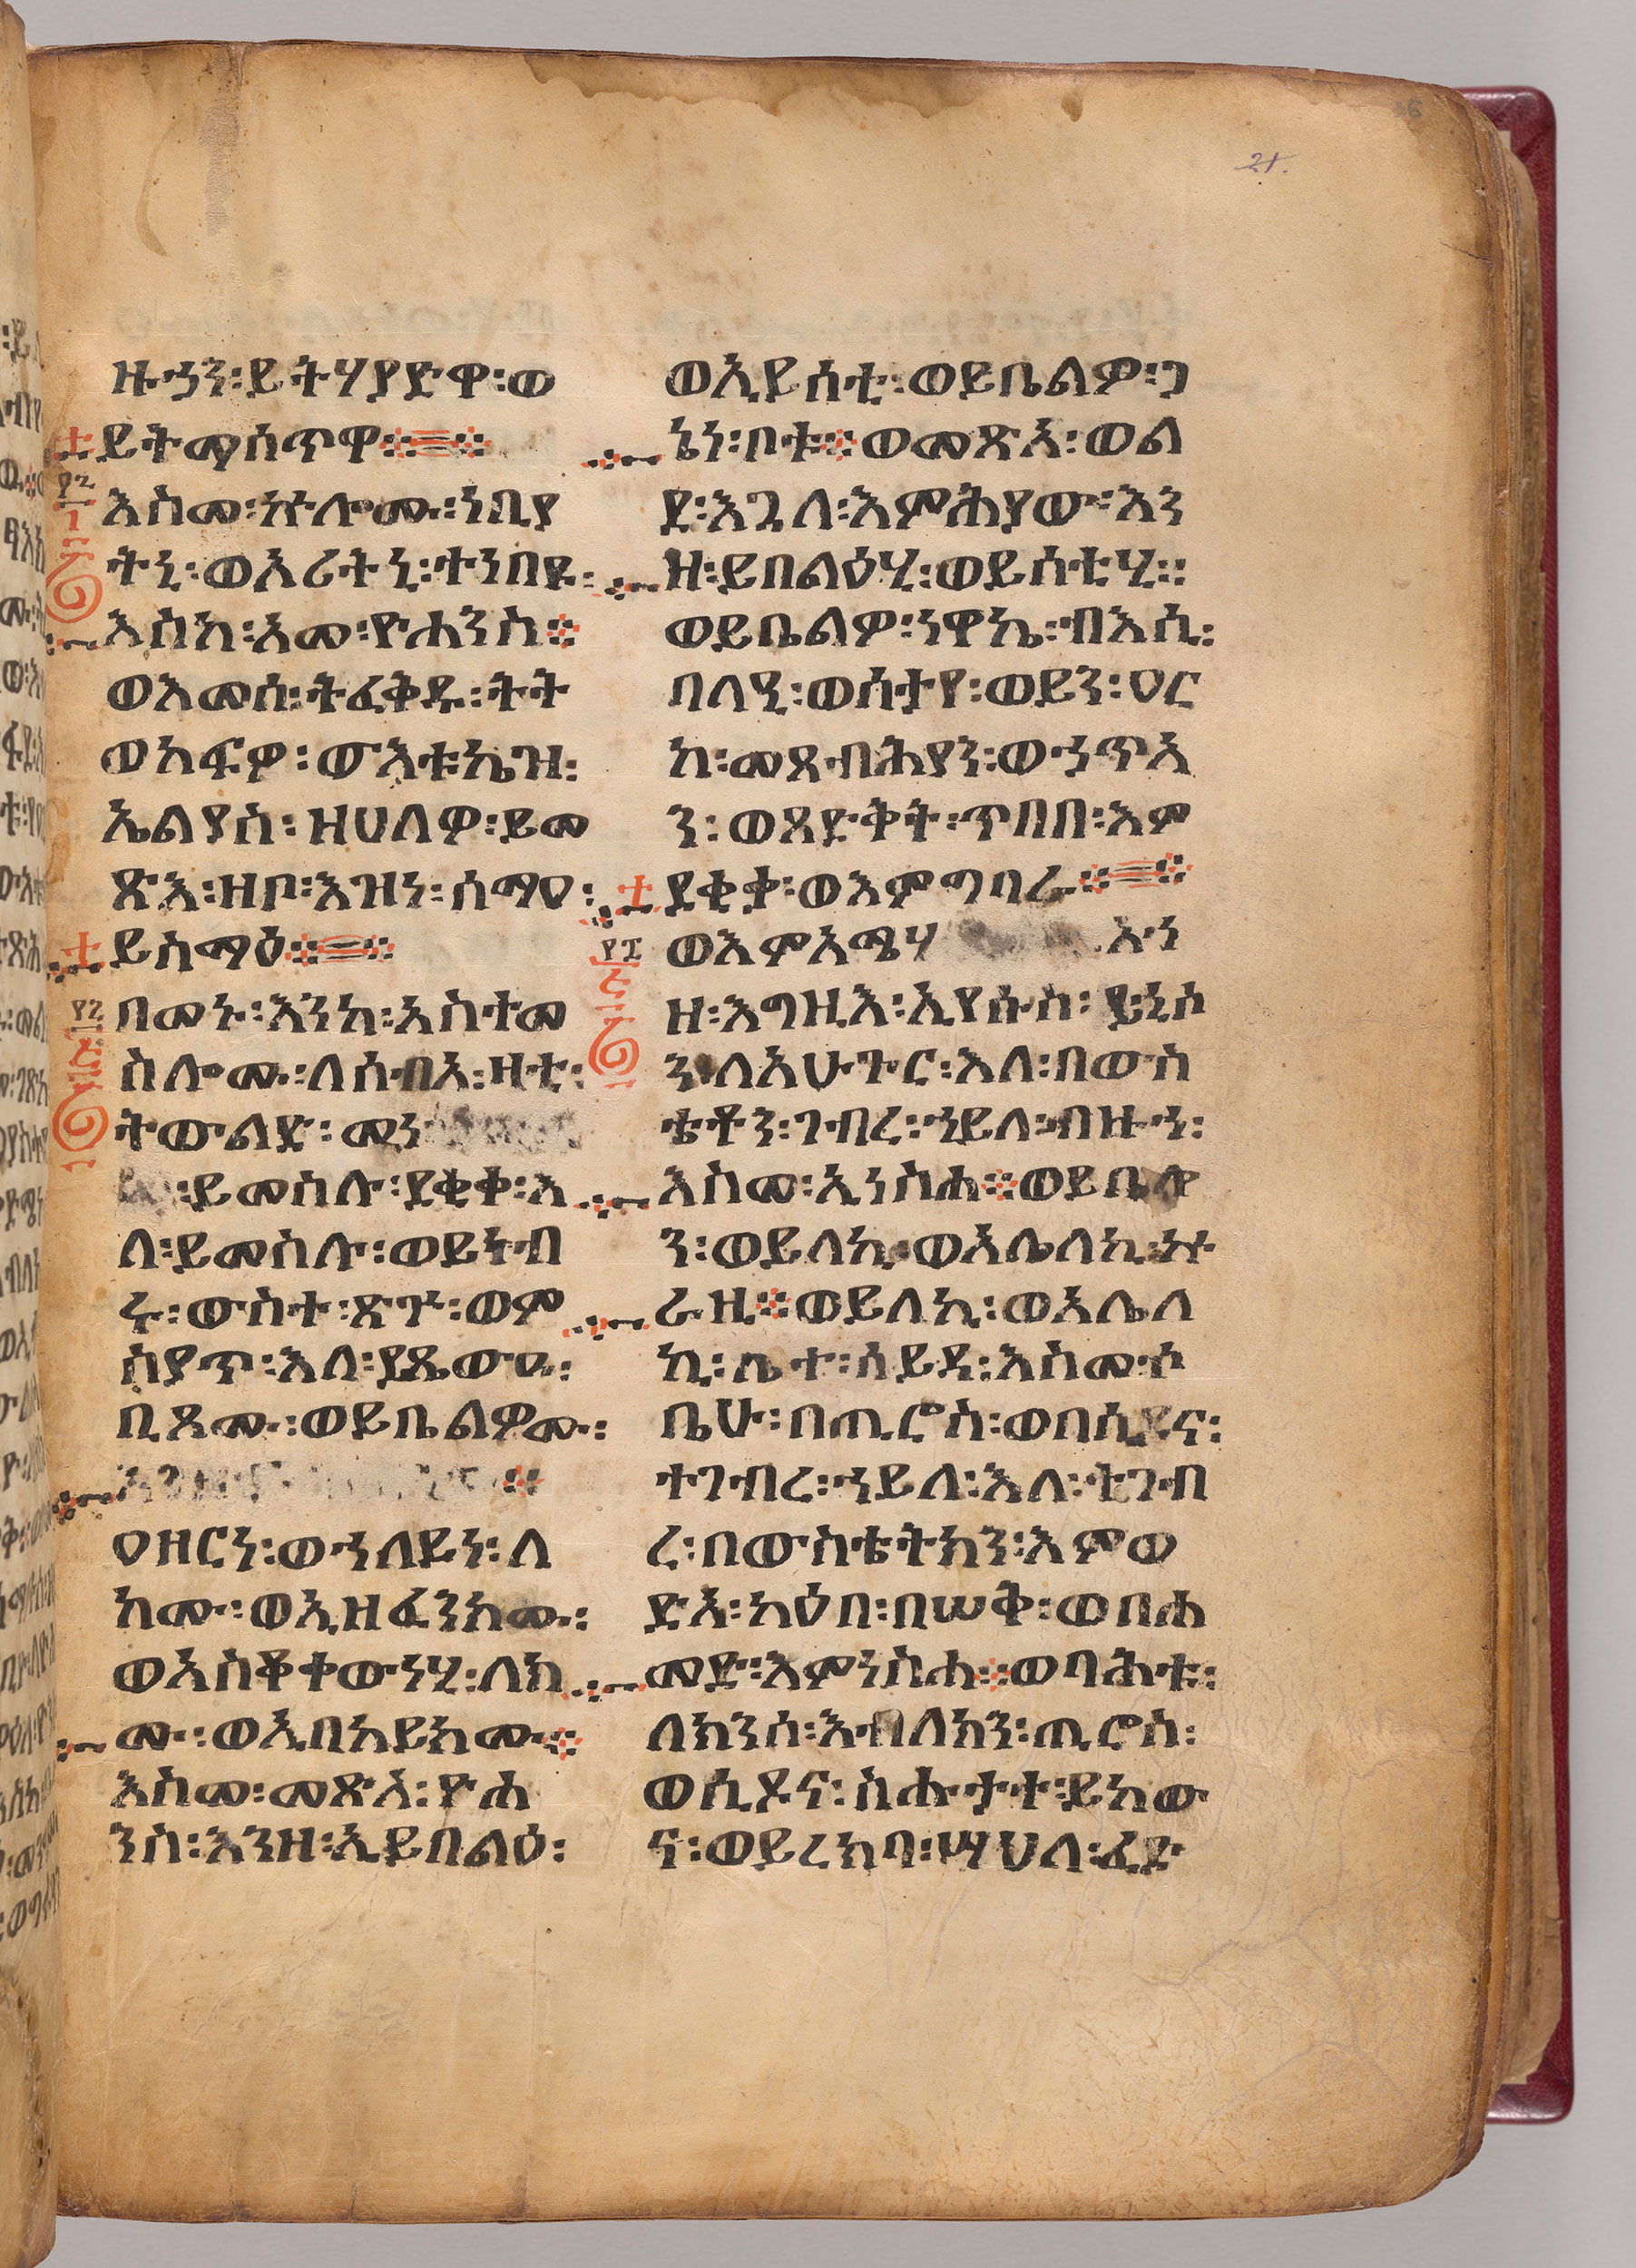 ዙኃን፡ይትሃያድዋ፡ወ
ይትማሰጥዋ፨
እስመ፡ኵሎሙ፡ነቢያ
ትኒ፡ወኦሪትኒ፡ተንበዩ፡
እስከ፡አመ፡ዮሐንስ፨
ወእመሰ፡ትፈቅዱ፡ትት
ወከፍዎ፡ውእቱኬዝ፡
ኤልያስ፡ዘሀለዎ፡ይመ
ጽእ፡ዘቦ፡እዝነ፡ሰማዐ፡
ይስማዕ፨
በመኑ፡እንከ፡አስተመ
ስሎሙ፡ለሰብእ፡ዛቲ፡
ትውልድ፡መን
፡ይመስሉ፡ደቂቀ፡እ
ለ፡ይመስሉ፡ወይነብ
ሩ፡ውስተ፡ጽጕ፡ወም
ስያጥ፡እለ፡ይጼውዑ፡
ቢጾሙ፡ወይቤልዎሙ፡
ዐዘርነ፡ወኀለይነ፡ለ
ከሙ፡ወኢዘፈንክሙ፡
ወአስቆቀውነሂ፡ለክ
ሙ፡ወኢበከይክሙ፨
እስመ፡መጽአ፡ዮሐ
ንስ፡እንዘ፡ኢይበልዕ፡
ወኢይሰቲ፡ወይቤልዎ፡ጋ
ኔነ፡ቦቱ፨ወመጽአ፡ወል
ደ፡እጓለ፡እምሕያው፡እን
ዘ፡ይበልዕሂ፡ወይሰቲሂ፡፡
ወይቤልዎ፡ነዋኬ፡ብእሲ፡
በላዒ፡ወሰታየ፡ወይን፡ዐር
ከ፡መጸብሕያን፡ወኃጥኣ
ን፡ወጸድቅት፡ጥበበ፡እም
ደቂቃ፡ወእምግባራ፨
ወእምአሜሃ እኀ
ዘ፡እግዚእ፡ኢየሱስ፡ይኂሶ
ን፡ለአሁጉር፡እለ፡በውስ
ቴቶን፡ገብረ፡ኀይለ፡ብዙኀ፡
እስመ፡ኢነስሐ፨ወይቤሎ
ን፡ወይለኪ፡ወኣሌለኪ፡ኮ
ራዚ፨ወይለኪ፡ወአሌለ
ኪ፡ቤተ፡ሳይዳ፡እስመ፡ሶ
ቤሁ፡በጢሮስ፡ወበሲዶና፡
ተገብረ፡ኀይለ፡እለ፡ተገብ
ረ፡በውስቴትክን፡እምወ
ድአ፡ከዕበ፡በሠቅ፡ወበሐ
መድ፡እምነስሐ፨ወባሕቱ፡
ለክንሰ፡እብለክን፡ጢሮስ፡
ወሲዶና፡ስሑታተ፡ይከው
ና፡ወይረክባ፡ሣህለ፡ፈድ